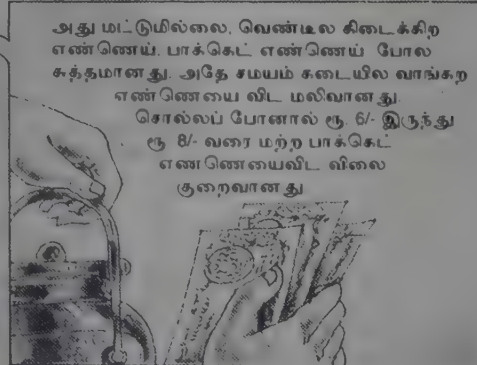 அது மட்டுமில்லை, வெண்டில கிடைக்கிற
எண்ணெய், பாக்கெட் எண்ணெய் போல
சுத்தமானது. அதே சமயம் கடையில வாங்கற
எண்ணெயை விட மலிவானது.
சொல்லப் போனால் ரூ. 6/- இருந்து
ரூ 8/- வரை மற்ற பாக்கெட்
எணணெயைவிட விலை
குறைவானது